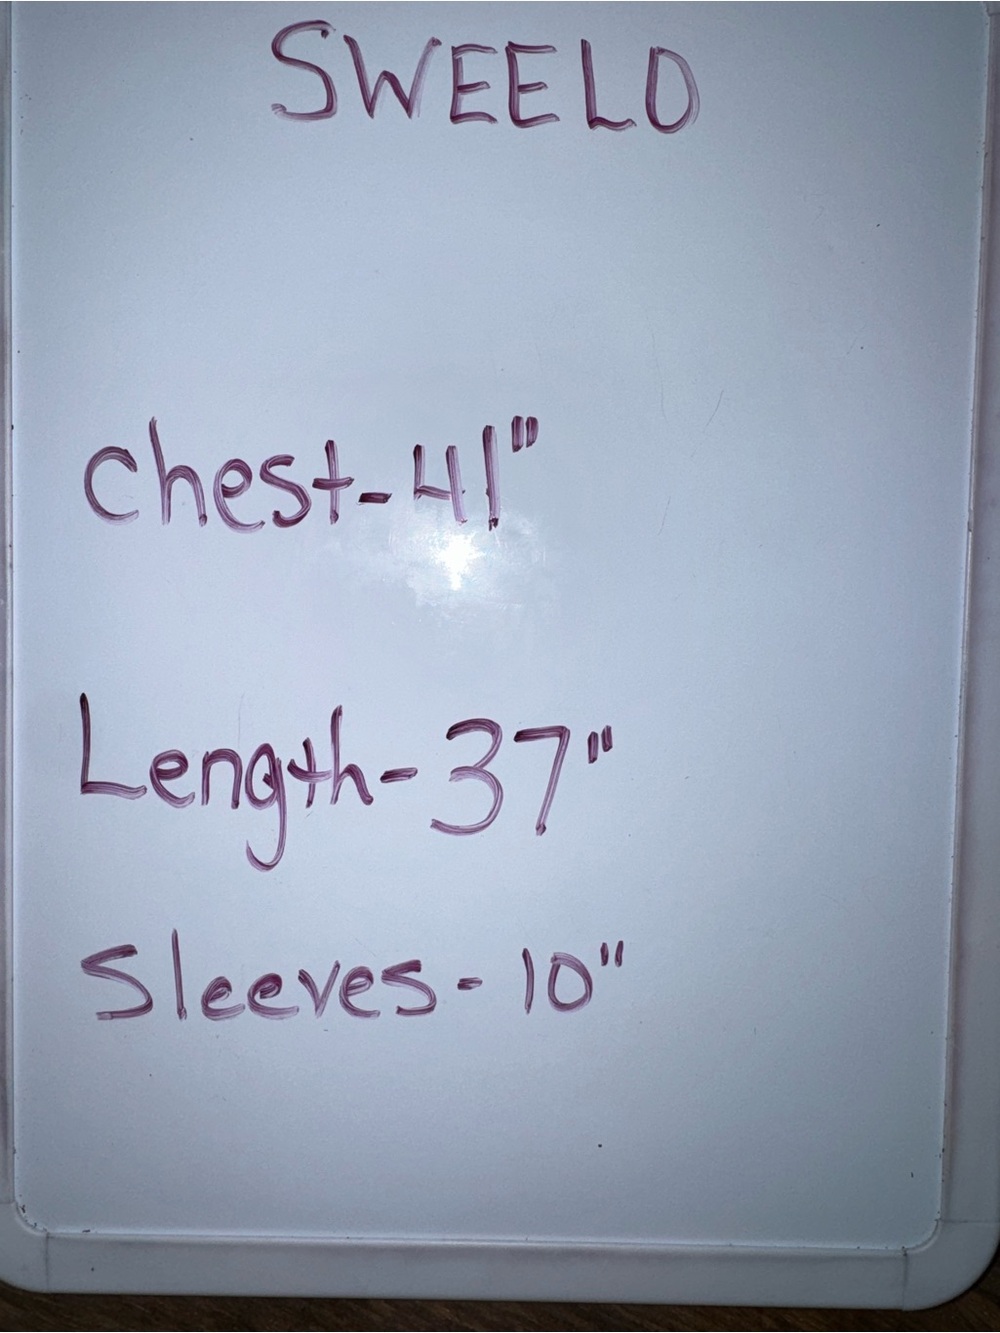 SWEELO
Chest-41"
Length-37"
Sleeves-10"